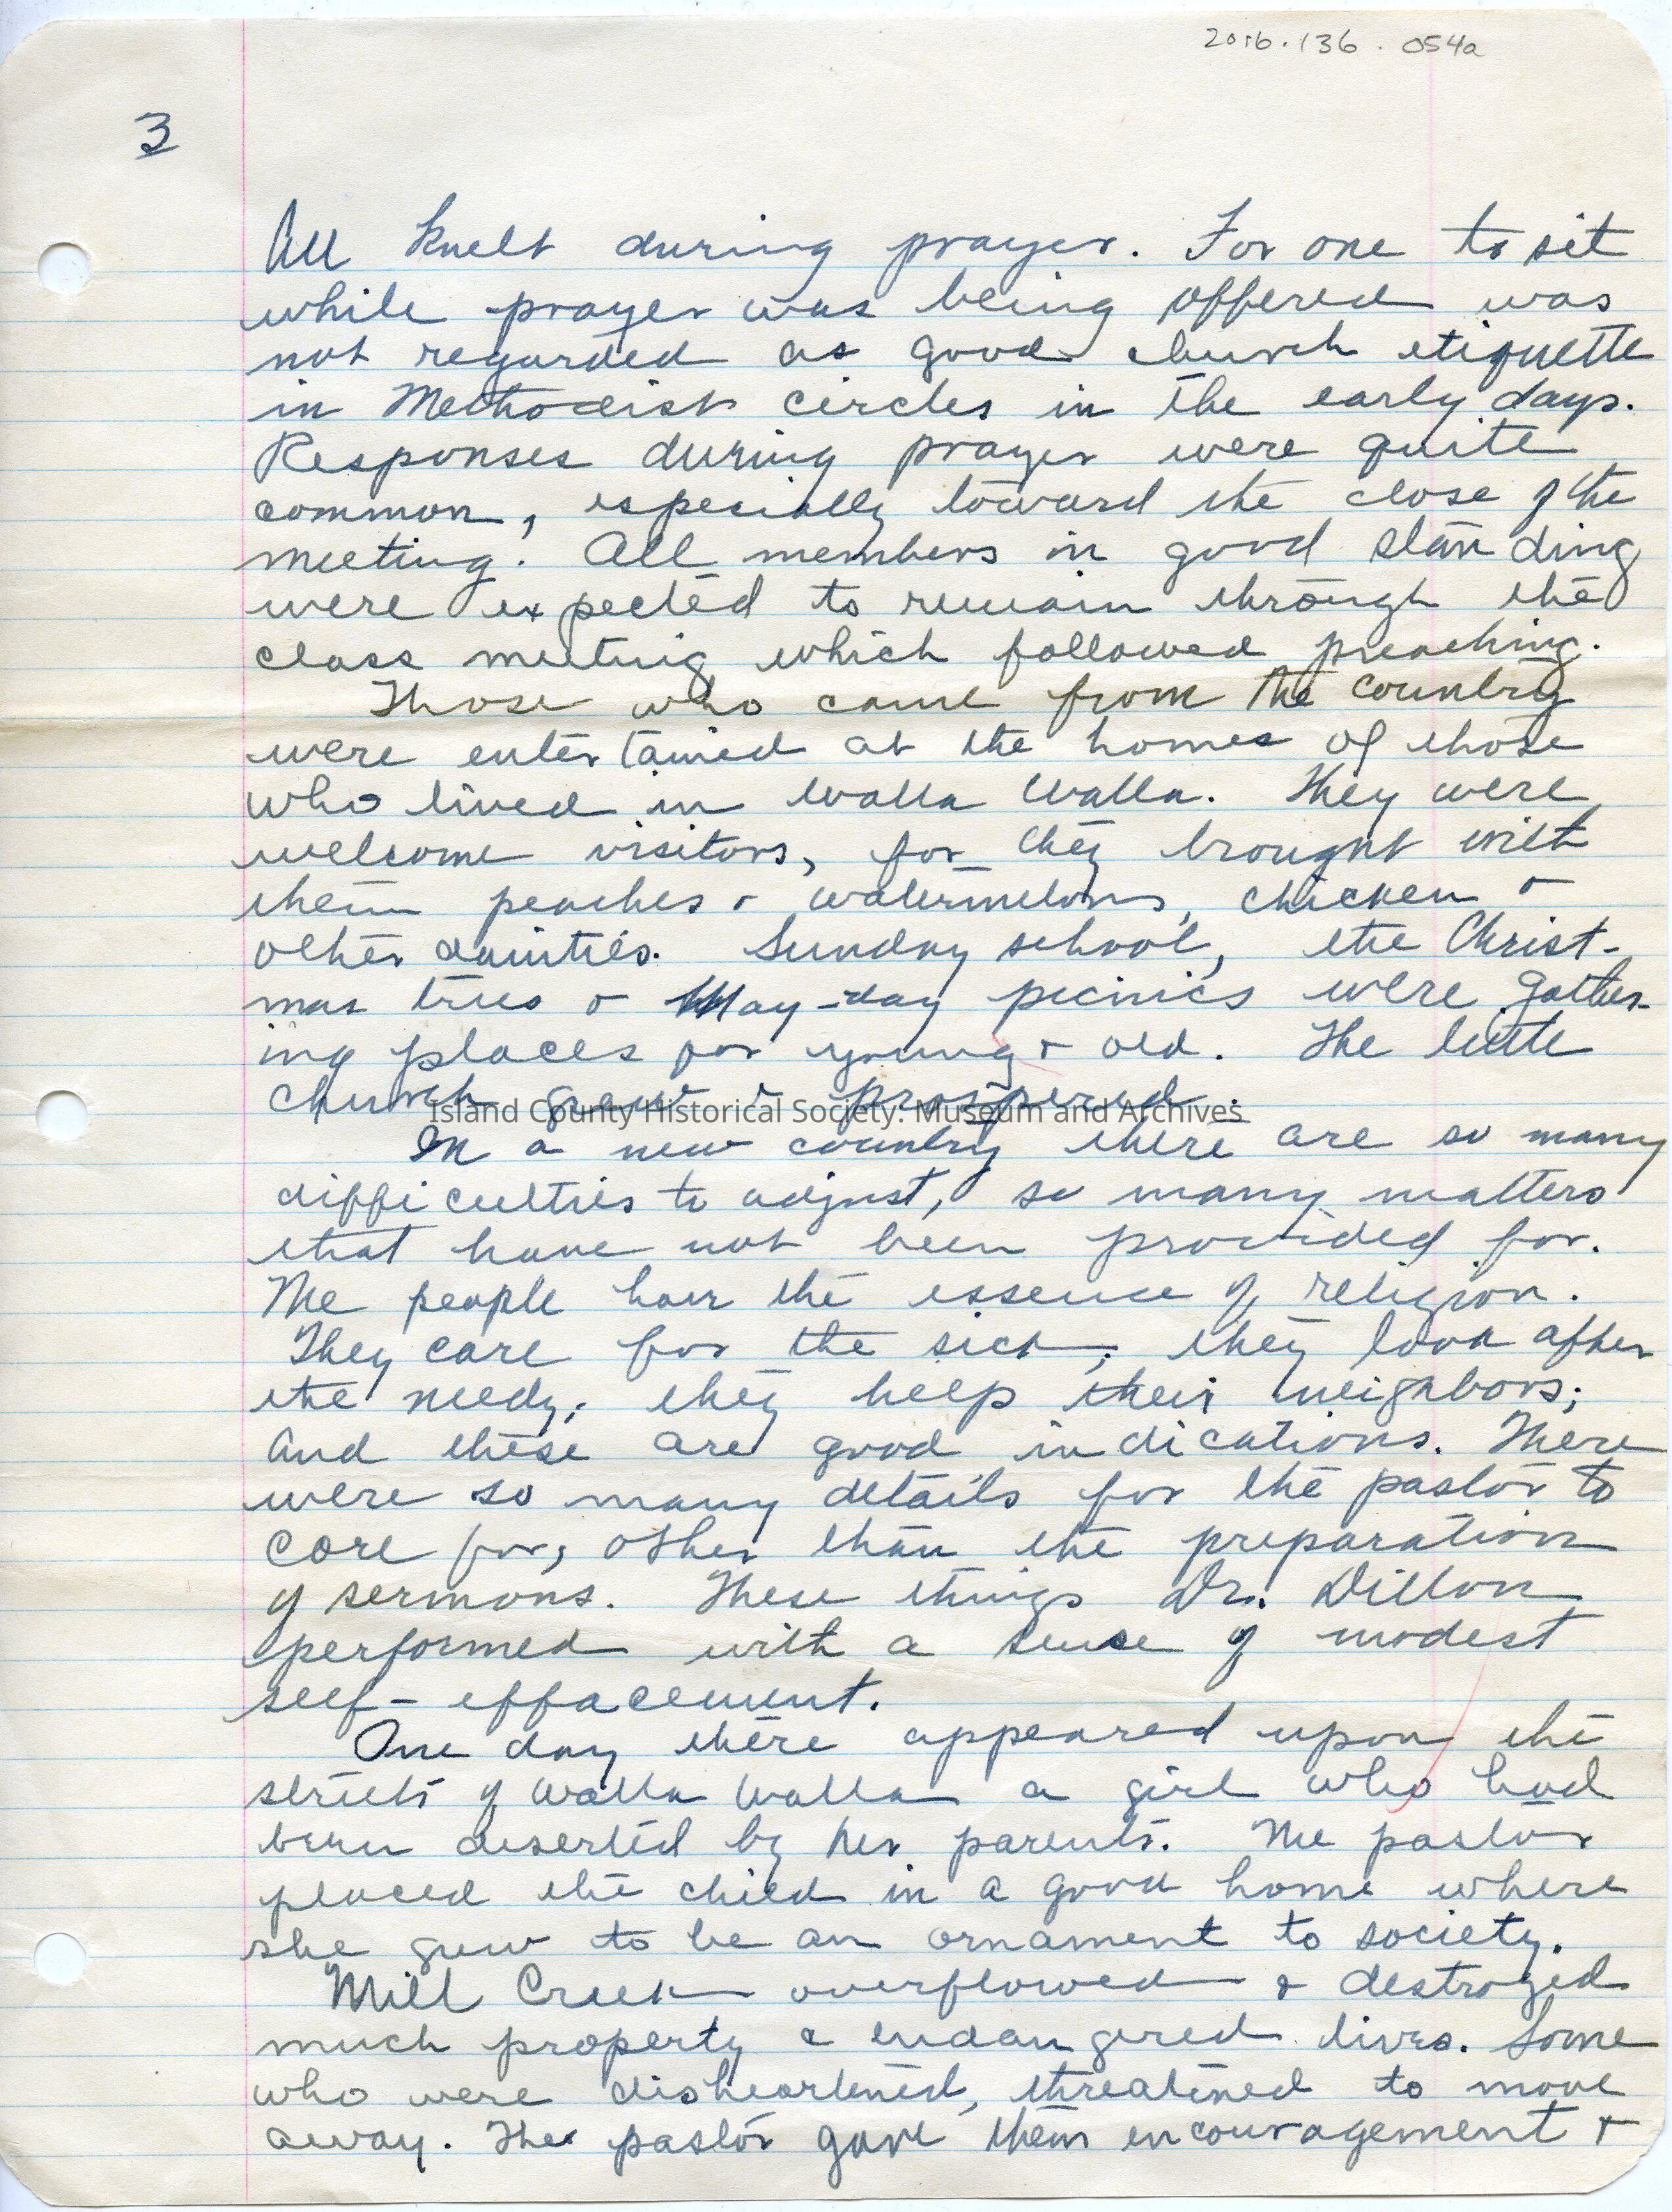 2016.136.054a
3
All knelt during prayer. For one to sit
while prayer was being offered was
not regarded as good church etiquette
in Methodist circles in the early days.
Responses during prayer were quite
common, especially toward the close of the
meeting. All members in good standing
were expected to remain through the
class meeting which followed preaching.
Those who came from the country
were entertained at the homes of those
who lived in Walla Walla. They were
welcome visitors, for they brought with
them peaches & watermelons, chicken &
other dainties. Sunday school, the Christ-
mas trees & May-day picnics were gather-
ing places for young & old. The little
church grew & prospered.
Island County Historical Society: Museum and Archives
In a new country there are so many
difficulties to adjust, so many matters
that have not been provided for.
The people have the essence of religion.
They care for the sick; they look after
the needy; they help their neighbors;
and these are good indications. There
were so many details for the pastor to
care for, other than the preparation
of sermons. These things Dr. Dillon
performed with a sense of modest
self-effacement.
One day there appeared upon the
streets of Walla Walla a girl who had
been deserted by her parents. The pastor
placed the child in a good home where
she grew to be an ornament to society.
Mill Creek overflowed & destroyed
much property & endangered lives. Some
who were disheartened, threatened to move
away. The pastor gave them encouragement &